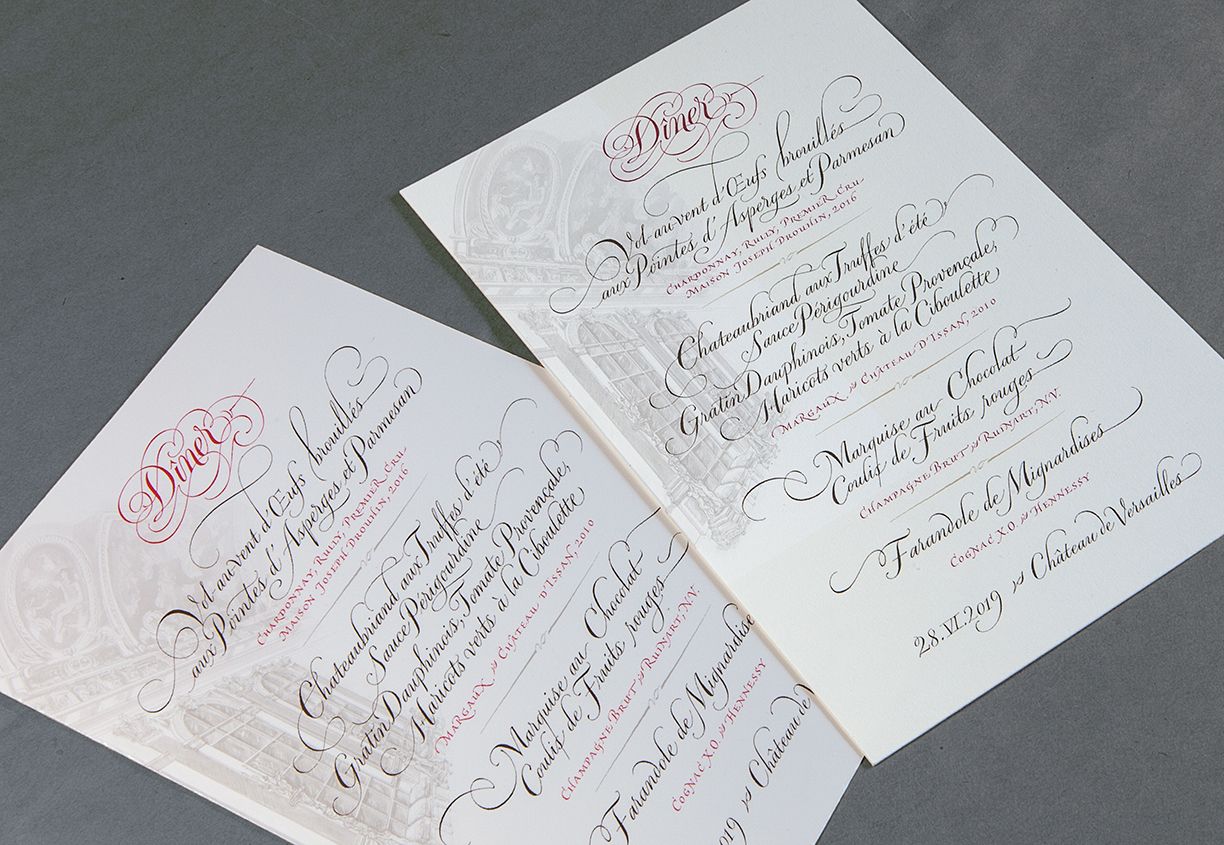 Dîner
Vol-au-vent d'Œufs brouillés
aux Pointes d'Asperges et Parmesan
Chardonnay, Rully, Premier Cru
Maison Joseph Drouhin, 2016
Chateaubriand aux Truffes d'été
Sauce Périgourdine
Gratin Dauphinois, Tomate Provençale,
Haricots verts à la Ciboulette
Margaux Château d'Issan, 2010
Marquise au Chocolat
Coulis de Fruits rouges
Champagne Brut Ruinart, NV.
Farandole de Mignardises
Cognac X.O. Hennessy
28.VI.2019 Château de Versailles
Dîner
Vol-au-vent d'Œufs brouillés
aux Pointes d'Asperges et Parmesan
Chardonnay, Rully, Premier Cru
Maison Joseph Drouhin, 2016
Chateaubriand aux Truffes d'été
Sauce Périgourdine
Gratin Dauphinois, Tomate Provençale,
Haricots verts à la Ciboulette
Margaux Château d'Issan, 2010
Marquise au Chocolat
Coulis de Fruits rouges
Champagne Brut Ruinart, NV.
Farandole de Mignardise
Cognac X.O. Hennessy
019 Château de